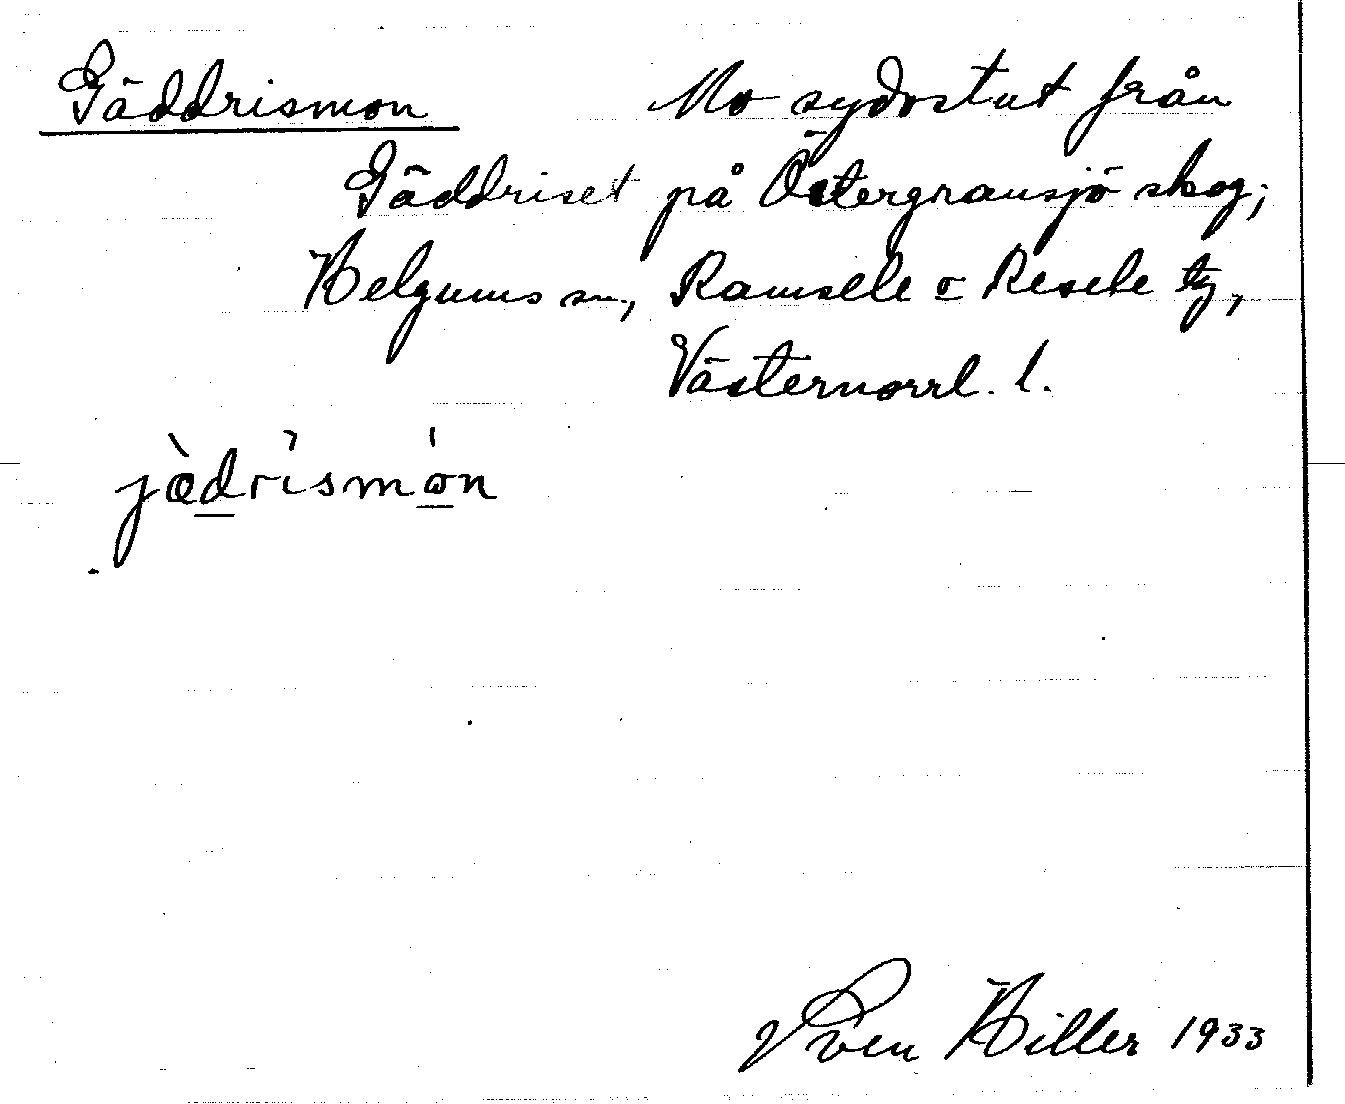 Gäddrismon Mo sydostut från
Gäddriset på Östergransjö skog,
Helgums sn., Ramsele o Resele tg,
Västernorrl. l.
jæ̀drismón
Sven Hiller 1933